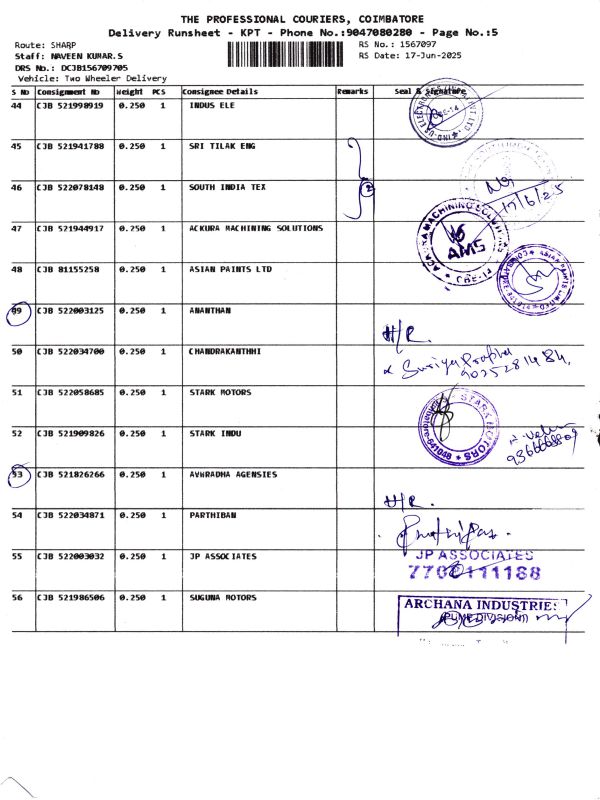 THE PROFESSIONAL COURIERS, COIMBATORE
Delivery Runsheet - KPT - Phone No.:9047080280 - Page No.:5
Route: SHARP
RS No.: 1567097
Staff: NAVEEN KUMAR.S
RS Date: 17-Jun-2025
DRS No.: DCJB156709705
Vehicle: Two Wheeler Delivery
S No Consignment No Weight PCS Consignee Details Remarks Seal & Signature
44 CJB 521998919 0.250 1 INDUS ELE
45 CJB 521941788 0.250 1 SRI TILAK ENG
46 CJB 522078148 0.250 1 SOUTH INDIA TEX
2
17/6/25
47 CJB 521944917 0.250 1 ACKURA MACHINING SOLUTIONS
ACKURA MACHINING SOLUTIONS
AMS
48 CJB 81155258 0.250 1 ASIAN PAINTS LTD
49 CJB 522003125 0.250 1 ANANTHAN
H/R.
50 CJB 522034700 0.250 1 CHANDRAKANTHHI
Suriya Prabha
9025281484.
51 CJB 522058685 0.250 1 STARK MOTORS
STARK MOTORS
641048
52 CJB 521909826 0.250 1 STARK INDU
53 CJB 521826266 0.250 1 ANURADHA AGENSIES
H/R.
54 CJB 522034871 0.250 1 PARTHIBAN
55 CJB 522003032 0.250 1 JP ASSOCIATES
JP ASSOCIATES
7708111188
56 CJB 521986506 0.250 1 SUGUNA MOTORS
ARCHANA INDUSTRIES
(PUMP DIVISION)